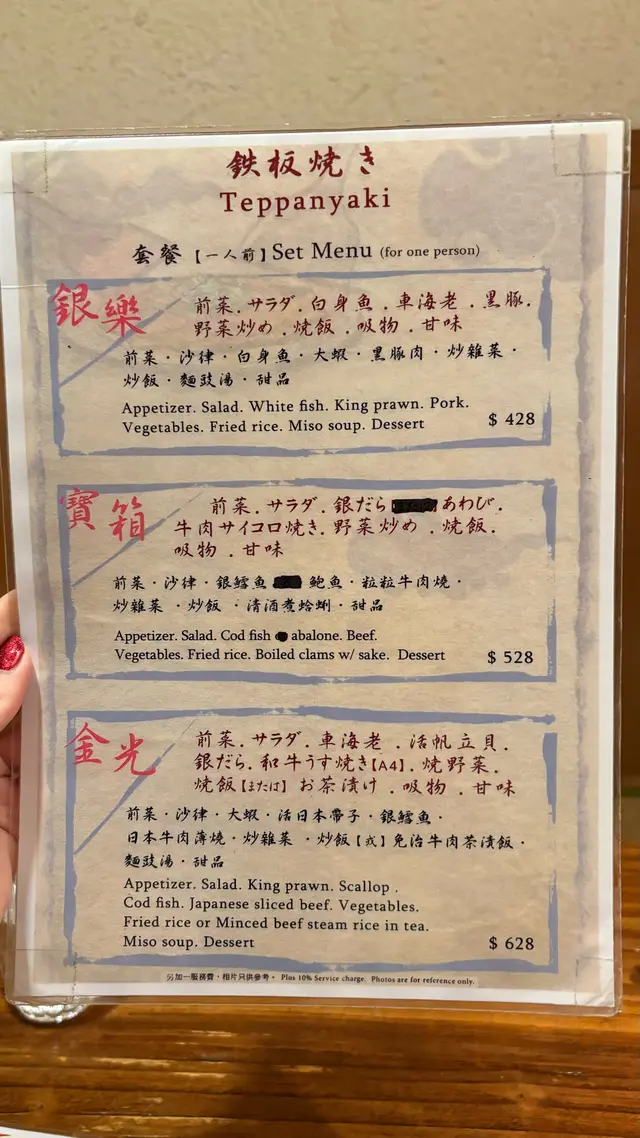 鉄板焼き
Teppanyaki
套餐【一人前】Set Menu (for one person)
銀樂
前菜.サラダ.白身魚.車海老.黒豚.
野菜炒め.焼飯.吸物.甘味
前菜・沙律・白身魚・大蝦・黑豚肉・炒雜菜・
炒飯・麵豉湯・甜品
Appetizer. Salad. White fish. King prawn. Pork.
Vegetables. Fried rice. Miso soup. Dessert
$ 428
寶箱
前菜.サラダ.銀だら あわび.
牛肉サイコロ焼き.野菜炒め.焼飯.
吸物.甘味
前菜・沙律・銀鱈魚 鮑魚・粒粒牛肉燒・
炒雜菜・炒飯・清酒煮蛤蜊・甜品
Appetizer. Salad. Cod fish abalone. Beef.
Vegetables. Fried rice. Boiled clams w/ sake. Dessert
$ 528
金光
前菜.サラダ.車海老.活帆立貝.
銀だら.和牛うす焼き【A4】.焼野菜.
焼飯【または】お茶漬け.吸物.甘味
前菜・沙律・大蝦・活日本帶子・銀鱈魚・
日本牛肉薄燒・炒雜菜・炒飯【或】免治牛肉茶漬飯・
麵豉湯・甜品
Appetizer. Salad. King prawn. Scallop.
Cod fish. Japanese sliced beef. Vegetables.
Fried rice or Minced beef steam rice in tea.
Miso soup. Dessert
$ 628
另加一服務費，相片只供參考。 Plus 10% Service charge. Photos are for reference only.